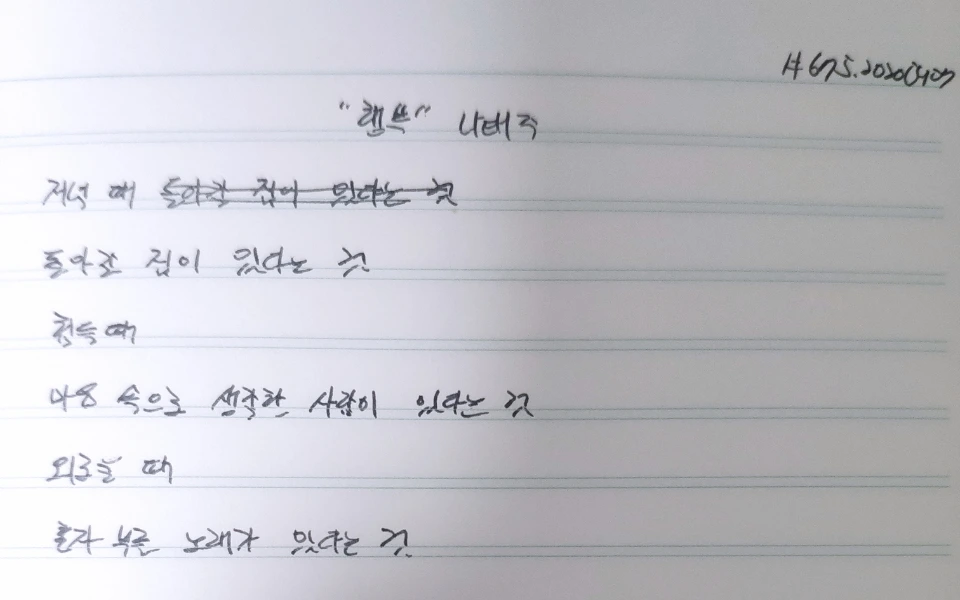 "행복" 나태주
저녁 때 돌아갈 집이 있다는 것
돌아갈 집이 있다는 것
힘들 때
마음 속으로 생각할 사람이 있다는 것
외로울 때
혼자 부를 노래가 있다는 것